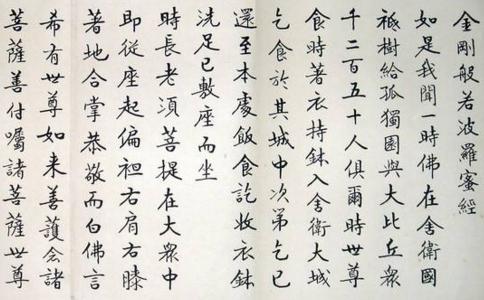 金剛般若波羅蜜經
如是我聞一時佛在舍衛國
祇樹給孤獨園與大比丘衆
千二百五十人俱爾時世尊
食時著衣持鉢入舍衛大城
乞食於其城中次第乞已
還至本處飯食訖收衣鉢
洗足已敷座而坐
時長老須菩提在大衆中
即從座起偏袒右肩右膝
著地合掌恭敬而白佛言
希有世尊如来善護念諸
菩薩善付囑諸菩薩世尊